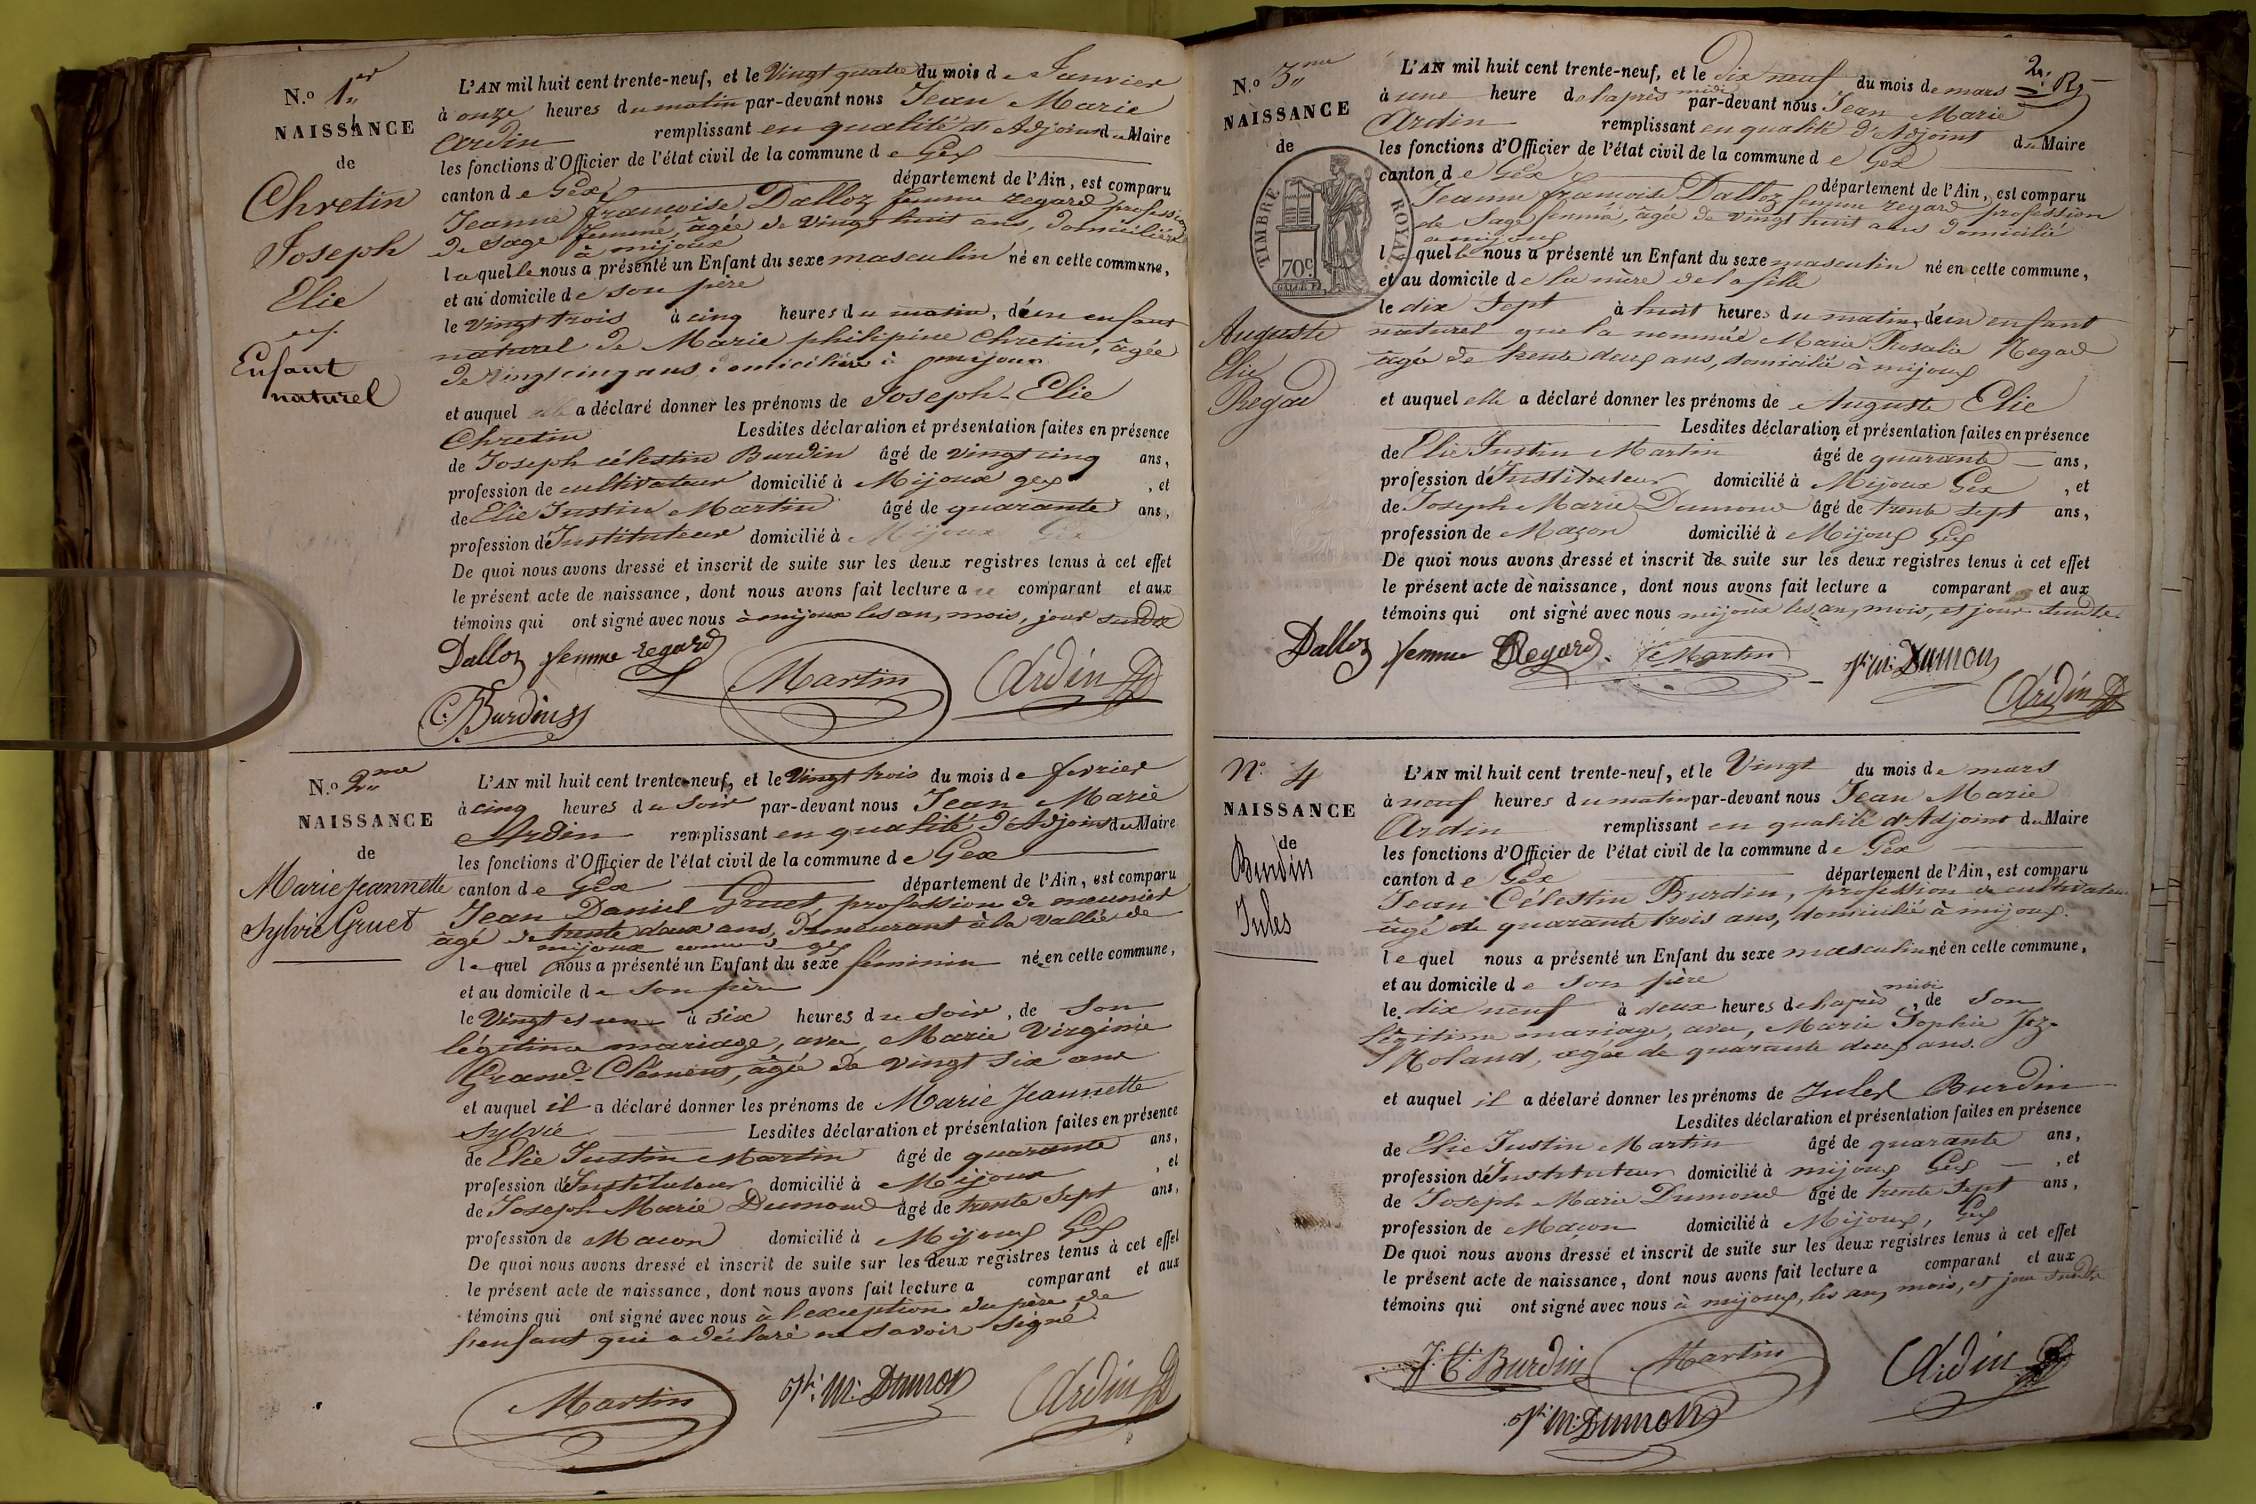 N.o 1er
NAISSANCE
de
Chretin
Joseph
Elie
Enfant
naturel
L'AN mil huit cent trente-neuf, et le Vingt quatre du mois de Janvier
à onze heures du matin par-devant nous Jean Marie
Ardin remplissant en qualité d'Adjoint du Maire
les fonctions d'Officier de l'état civil de la commune de Gex
canton de Gex département de l'Ain, est comparu
Jeanne françoise Dalloz femme regard profession
de Sage femme, âgée de vingt huit ans, domiciliée
à mijoux
laquelle nous a présenté un Enfant du sexe masculin né en cette commune,
et au domicile de son père
le vingt trois à cinq heures du matin, de un enfant
naturel de Marie philipine Chretin, âgée
de vingt cinq ans domiciliée à mijoux
et auquel elle a déclaré donner les prénoms de Joseph-Elie
Chretin Lesdites déclaration et présentation faites en présence
de Joseph célestin Burdin âgé de vingt cinq ans,
profession de cultivateur domicilié à Mijoux gex , et
de Elie Justin Martin âgé de quarante ans,
profession d'Instituteur domicilié à Mijoux Gex
De quoi nous avons dressé et inscrit de suite sur les deux registres tenus à cet effet
le présent acte de naissance, dont nous avons fait lecture a comparant et aux
témoins qui ont signé avec nous à mijoux les an, mois, jour susdit
Dalloz femme regard Martin Ardin
C. Burdin
N.o 2me
NAISSANCE
de
Marie Jeannette
Sylvie Gruet
L'AN mil huit cent trente-neuf, et le Vingt trois du mois de fevrier
à cinq heures du Soir par-devant nous Jean Marie
Ardin remplissant en qualité d'Adjoint du Maire
les fonctions d'Officier de l'état civil de la commune de Gex
canton de Gex département de l'Ain, est comparu
Jean Daniel Gruet, profession de meunier
âgé de trente deux ans, Demeurant à la Vallée de
mijoux commune gex
lequel nous a présenté un Enfant du sexe féminin né en cette commune,
et au domicile de Son père
le Vingt et un à six heures du Soir, de Son
légitime mariage, avec, Marie Virginie
Grand-Clément, âgée de vingt six ans
et auquel il a déclaré donner les prénoms de Marie Jeannette
Sylvie Lesdites déclaration et présentation faites en présence
de Elie Justin Martin âgé de quarante ans,
profession d'Instituteur domicilié à Mijoux , et
de Joseph Marie Dumond âgé de trente Sept ans,
profession de Macon domicilié à Mijoux Gex
De quoi nous avons dressé et inscrit de suite sur les deux registres tenus à cet effet
le présent acte de naissance, dont nous avons fait lecture a comparant et aux
témoins qui ont signé avec nous à l'exception du père de
l'enfant qui a déclaré ne savoir signé
Martin Jh: M: Dumon Ardin
2: R
N.o 3me
NAISSANCE
de
TIMBRE ROYAL
70c
Auguste
Elie
Regad
L'AN mil huit cent trente-neuf, et le dix neuf du mois de mars
à une heure de l'après midi par-devant nous Jean Marie
Ardin remplissant en qualité d'Adjoint du Maire
les fonctions d'Officier de l'état civil de la commune de Gex
canton de Gex département de l'Ain, est comparu
Jeanne françoise Dalloz femme regard profession
de Sage femme, âgée de vingt huit ans domicilié
a mijoux
lequel nous a présenté un Enfant du sexe masculin né en cette commune,
et au domicile de la mère de la fille
le dix Sept à huit heures du matin, de un enfant
naturel que la nommée Marie Rosalie Regad
âgée de trente deux ans, domicilié à mijoux
et auquel elle a déclaré donner les prénoms de Auguste Elie
Lesdites déclaration et présentation faites en présence
de Elie Justin Martin âgé de quarante ans,
profession d'Instituteur domicilié à Mijoux Gex , et
de Joseph Marie Dumond âgé de trente sept ans,
profession de Maçon domicilié à Mijoux Gex
De quoi nous avons dressé et inscrit de suite sur les deux registres tenus à cet effet
le présent acte de naissance, dont nous avons fait lecture a comparant et aux
témoins qui ont signé avec nous mijoux les an, mois, et jour susdits
Dalloz femme Regard Martin Jh: M: Dumon
Ardin
N.o 4
NAISSANCE
de
Burdin
Jules
L'AN mil huit cent trente-neuf, et le Vingt du mois de mars
à neuf heures du matin par-devant nous Jean Marie
Ardin remplissant en qualité d'Adjoint du Maire
les fonctions d'Officier de l'état civil de la commune de Gex
canton de Gex département de l'Ain, est comparu
Jean Célestin Burdin, profession de cultivateur
âgé de quarante trois ans, domicilié à mijoux.
lequel nous a présenté un Enfant du sexe masculin né en cette commune,
et au domicile de son père
le dix neuf à deux heures de l'après midi, de son
légitime mariage, avec, Marie Sophie
Roland, agée de quarante deux ans.
et auquel il a déclaré donner les prénoms de Jules Burdin
Lesdites déclaration et présentation faites en présence
de Elie Justin Martin âgé de quarante ans,
profession d'Instituteur domicilié à mijoux Gex , et
de Joseph Marie Dumond âgé de trente Sept ans,
profession de Macon domicilié à Mijoux, Gex
De quoi nous avons dressé et inscrit de suite sur les deux registres tenus à cet effet
le présent acte de naissance, dont nous avons fait lecture a comparant et aux
témoins qui ont signé avec nous à mijoux, les an, mois, et jour susdits
J. C. Burdin Martin Ardin
Jh: M: Dumon